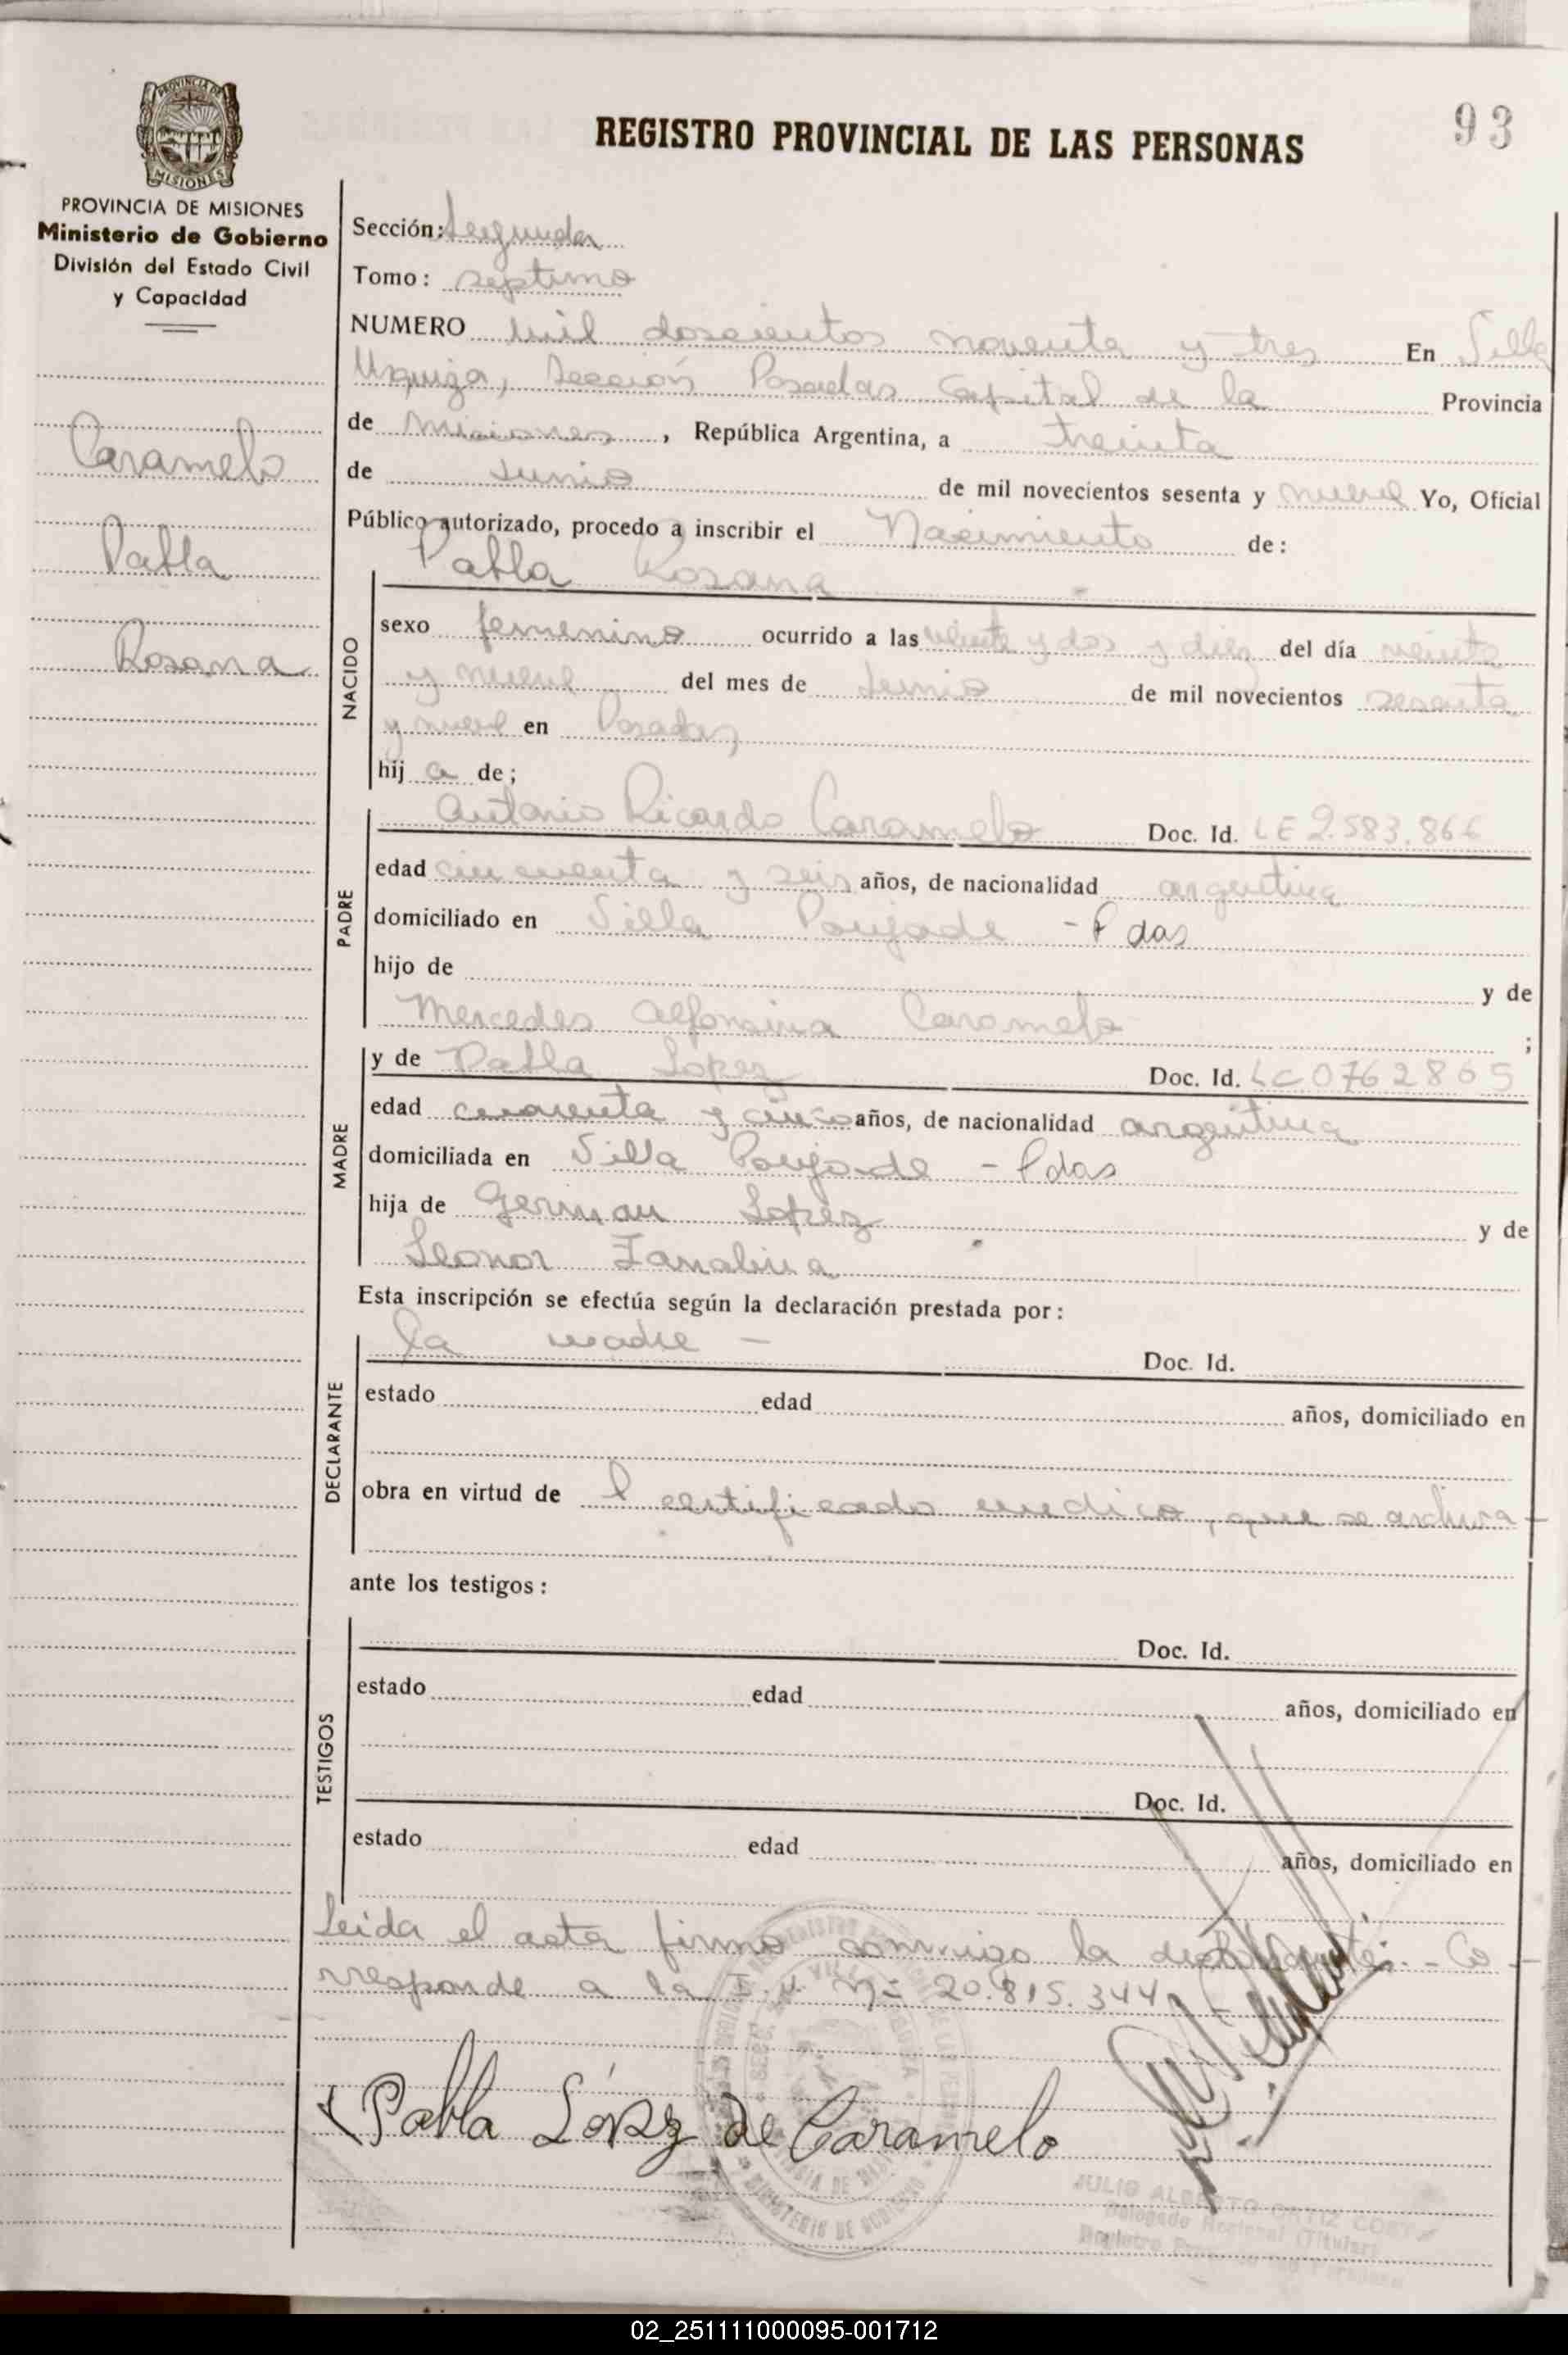 93
REGISTRO PROVINCIAL DE LAS PERSONAS
PROVINCIA DE
MISIONES
PROVINCIA DE MISIONES
Ministerio de Gobierno
División del Estado Civil
y Capacidad
Caramelo
Pabla
Rosana
Sección: Segunda
Tomo: septimo
NUMERO mil doscientos noventa y tres En Villa
Urquiza, Sección Posadas Capital de la Provincia
de Misiones, República Argentina, a treinta
de Junio de mil novecientos sesenta y nueve Yo, Oficial
Público autorizado, procedo a inscribir el Nacimiento de:
Pabla Rosana
NACIDO
sexo femenino ocurrido a las veinte y dos y diez del día veinte
y nueve del mes de Junio de mil novecientos sesenta
y nueve en Posadas
hij a de;
PADRE
Antonio Ricardo Caramelo Doc. Id. LE 2.583.866
edad cincuenta y seis años, de nacionalidad argentina
domiciliado en Villa Poujade - Pdas
hijo de y de
Mercedes Alfonsina Caramelo ;
MADRE
y de Pabla Lopez Doc. Id. LC 0762865
edad cuarenta y cinco años, de nacionalidad argentina
domiciliada en Villa Poujade - Pdas
hija de German Lopez y de
Leonor
Esta inscripción se efectúa según la declaración prestada por:
DECLARANTE
la madre - Doc. Id.
estado edad años, domiciliado en
obra en virtud de l certificado medico, que se archiva -
ante los testigos:
TESTIGOS
Doc. Id.
estado edad años, domiciliado en
Doc. Id.
estado edad años, domiciliado en
Leida el acta firma conmigo la declarante. - Co -
rresponde a la I.U. Nº 20.815.344
Pabla López de Caramelo
MINISTERIO DE GOBIERNO
JULIO ALBERTO ORTIZ
Delegado Regional (Titular)
02_251111000095-001712